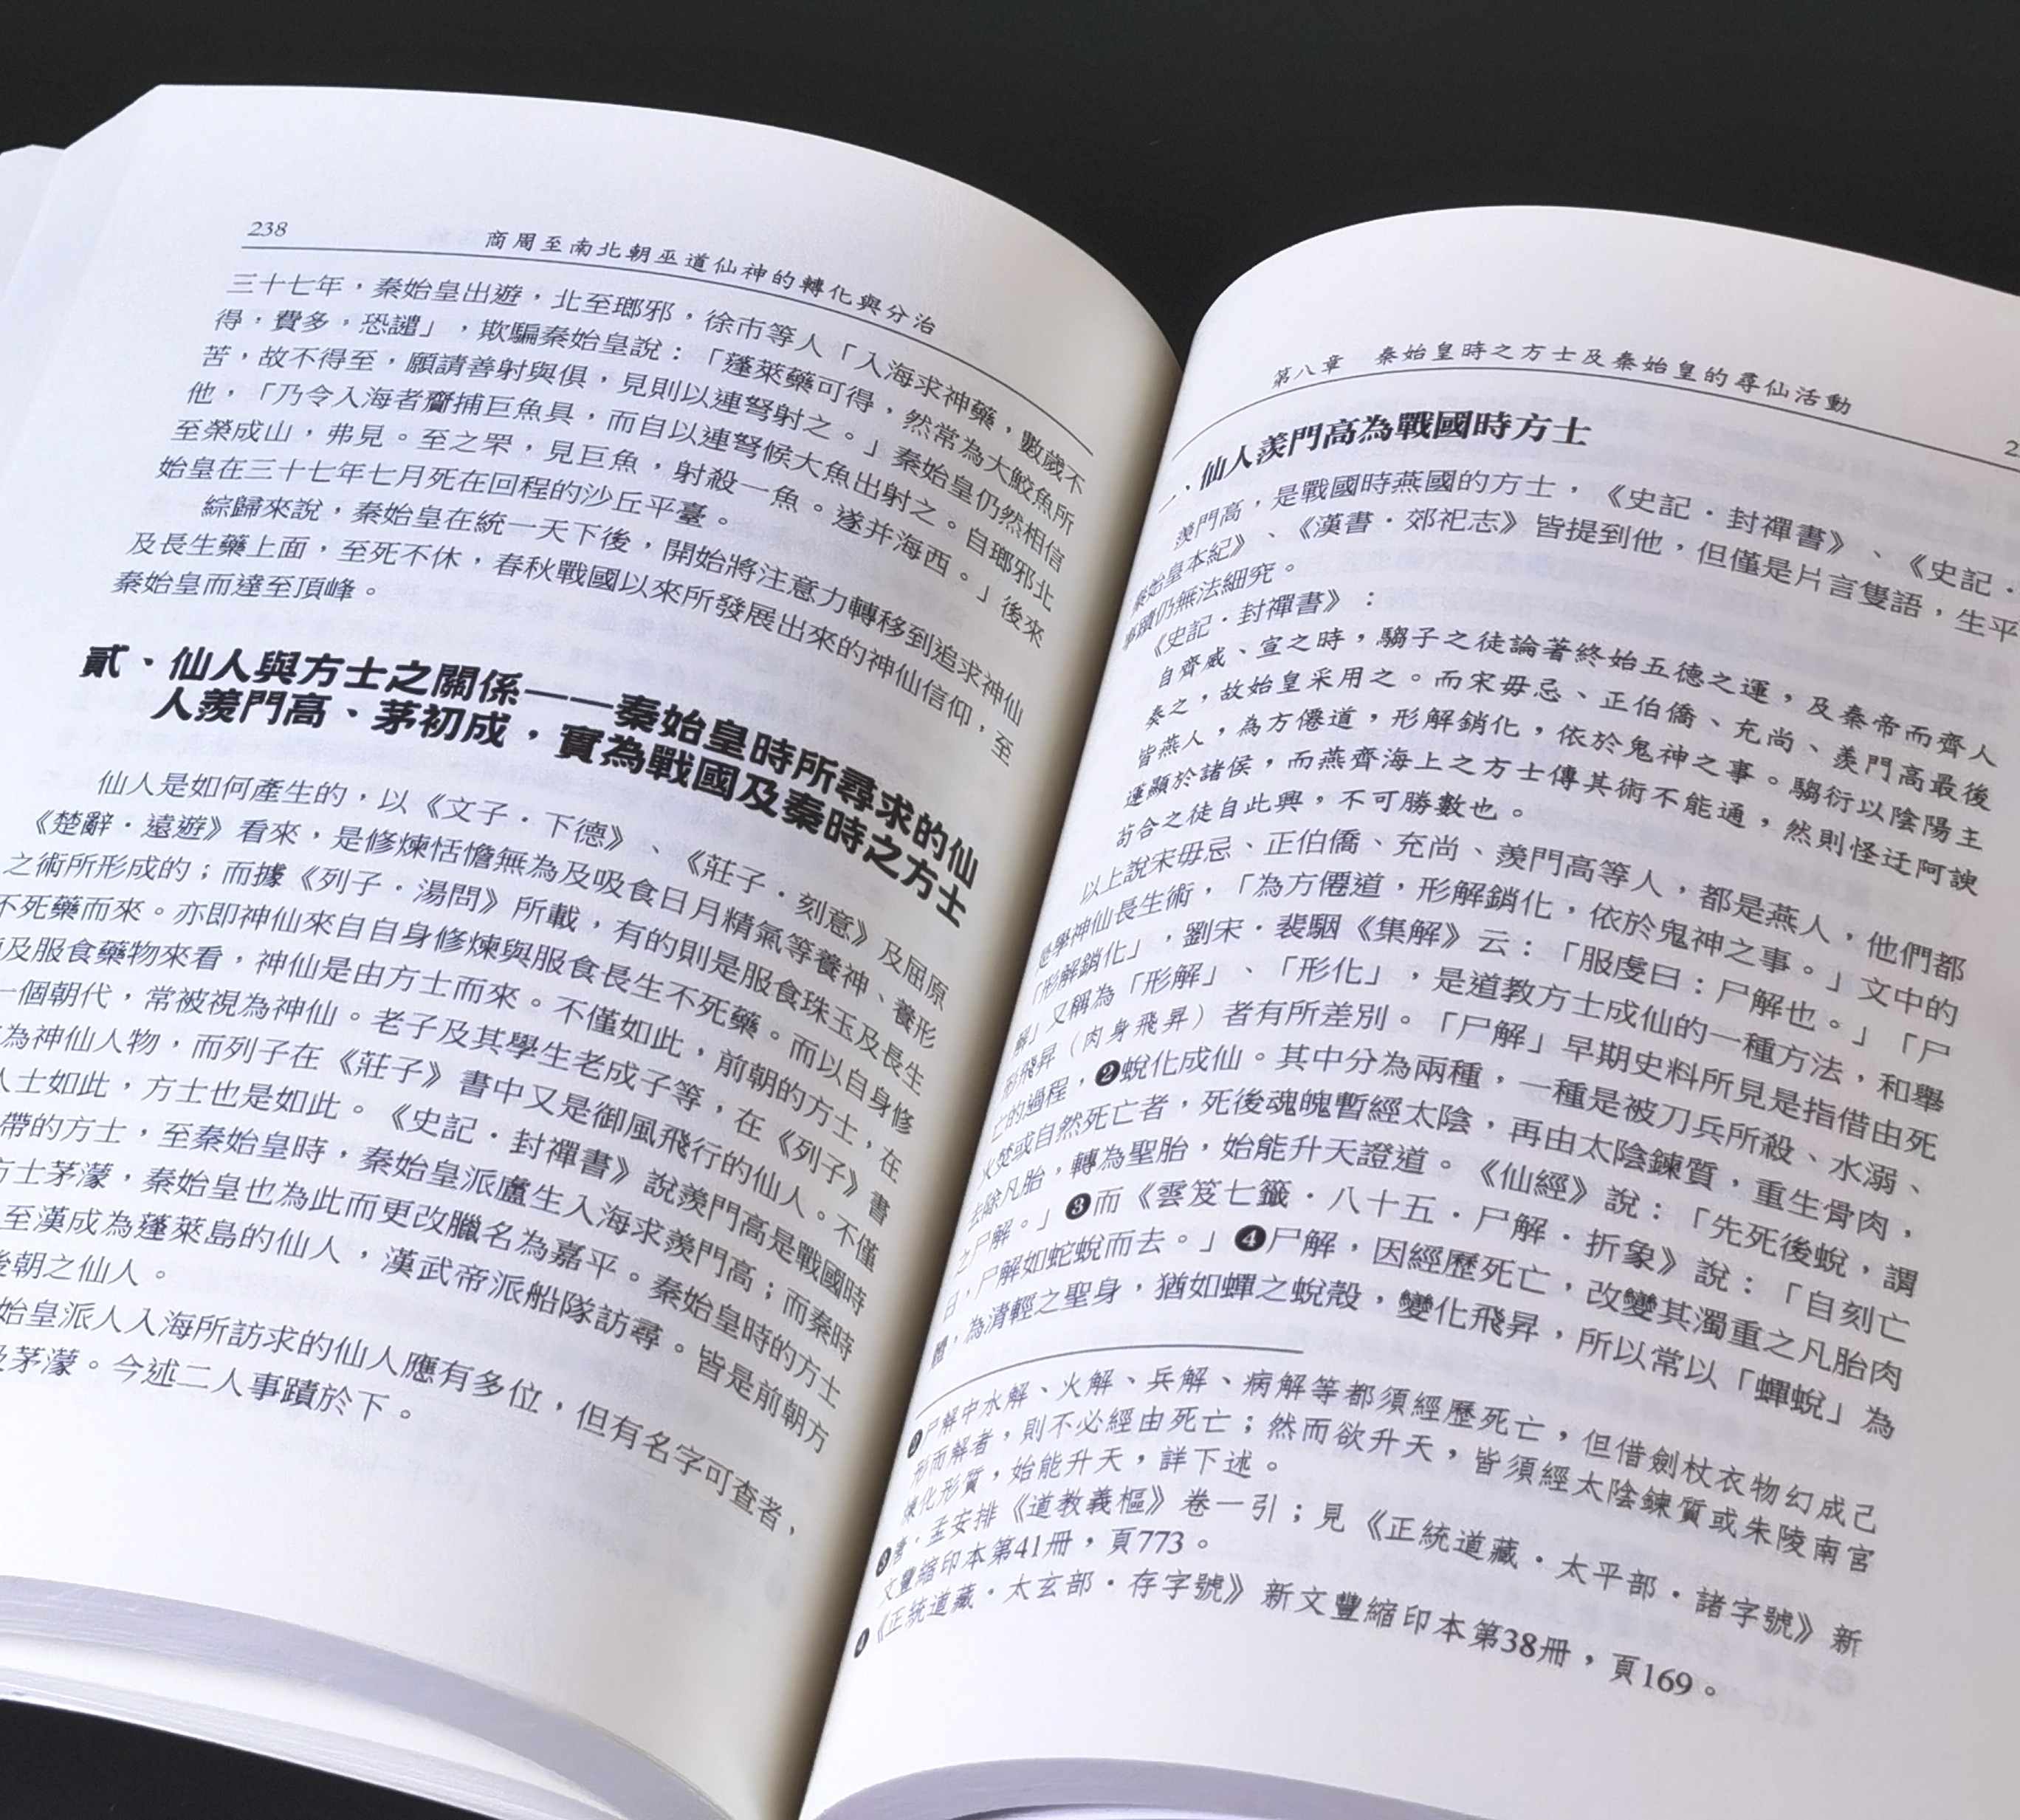 238
商周至南北朝巫道仙神的轉化與分治
三十七年，秦始皇出遊，北至瑯邪，徐市等人「入海求神藥，數歲不
得，費多，恐譴」，欺騙秦始皇說：「蓬萊藥可得，然常為大鮫魚所
苦，故不得至，願請善射與俱，見則以連弩射之。」秦始皇仍然相信
他，「乃令入海者齎捕巨魚具，而自以連弩候大魚出射之。自瑯邪北
至榮成山，弗見。至之罘，見巨魚，射殺一魚。遂并海西。」後來
始皇在三十七年七月死在回程的沙丘平臺。
綜歸來說，秦始皇在統一天下後，開始將注意力轉移到追求神仙
及長生藥上面，至死不休，春秋戰國以來所發展出來的神仙信仰，至
秦始皇而達至頂峰。
貳、仙人與方士之關係——秦始皇時所尋求的仙
人羨門高、茅初成，實為戰國及秦時之方士
仙人是如何產生的，以《文子．下德》、《莊子．刻意》及屈原
《楚辭．遠遊》看來，是修煉恬憺無為及吸食日月精氣等養神、養形
之術所形成的；而據《列子．湯問》所載，有的則是服食珠玉及長生
不死藥而來。亦即神仙來自自身修煉與服食長生不死藥。而以自身修
及服食藥物來看，神仙是由方士而來。不僅如此，前朝的方士，在
一個朝代，常被視為神仙。老子及其學生老成子等，在《列子》書
為神仙人物，而列子在《莊子》書中又是御風飛行的仙人。不僅
人士如此，方士也是如此。《史記．封禪書》說羨門高是戰國時
帶的方士，至秦始皇時，秦始皇派盧生入海求羨門高；而秦時
方士茅濛，秦始皇也為此而更改臘名為嘉平。秦始皇時的方士
至漢成為蓬萊島的仙人，漢武帝派船隊訪尋。皆是前朝方
後朝之仙人。
始皇派人入海所訪求的仙人應有多位，但有名字可查者，
及茅濛。今述二人事蹟於下。
第八章　秦始皇時之方士及秦始皇的尋仙活動
一、仙人羨門高為戰國時方士
羨門高，是戰國時燕國的方士，《史記．封禪書》、《史記．
秦始皇本紀》、《漢書．郊祀志》皆提到他，但僅是片言隻語，生平
事蹟仍無法細究。
《史記．封禪書》：
自齊威、宣之時，騶子之徒論著終始五德之運，及秦帝而齊人
奏之，故始皇采用之。而宋毋忌、正伯僑、充尚、羨門高最後
皆燕人，為方僊道，形解銷化，依於鬼神之事。騶衍以陰陽主
運顯於諸侯，而燕齊海上之方士傳其術不能通，然則怪迂阿諛
苟合之徒自此興，不可勝數也。
以上說宋毋忌、正伯僑、充尚、羨門高等人，都是燕人，他們都
是學神仙長生術，「為方僊道，形解銷化，依於鬼神之事。」文中的
「形解銷化」，劉宋．裴駰《集解》云：「服虔曰：尸解也。」「尸
解」又稱為「形解」、「形化」，是道教方士成仙的一種方法，和舉
形飛昇（肉身飛昇）者有所差別。「尸解」早期史料所見是指借由死
亡的過程，❷蛻化成仙。其中分為兩種，一種是被刀兵所殺、水溺、
火焚或自然死亡者，死後魂魄暫經太陰，再由太陰鍊質，重生骨肉，
去除凡胎，轉為聖胎，始能升天證道。《仙經》說：「先死後蛻，謂
之尸解。」❸而《雲笈七籤．八十五．尸解．折象》說：「自刻亡
日，尸解如蛇蛻而去。」❹尸解，因經歷死亡，改變其濁重之凡胎肉
體，為清輕之聖身，猶如蟬之蛻殼，變化飛昇，所以常以「蟬蛻」為
❷尸解中水解、火解、兵解、病解等都須經歷死亡，但借劍杖衣物幻成己
形而解者，則不必經由死亡；然而欲升天，皆須經太陰鍊質或朱陵南宮
煉化形質，始能升天，詳下述。
❸唐．孟安排《道教義樞》卷一引；見《正統道藏．太平部．諸字號》新
文豐縮印本第41冊，頁773。
❹《正統道藏．太玄部．存字號》新文豐縮印本第38冊，頁169。